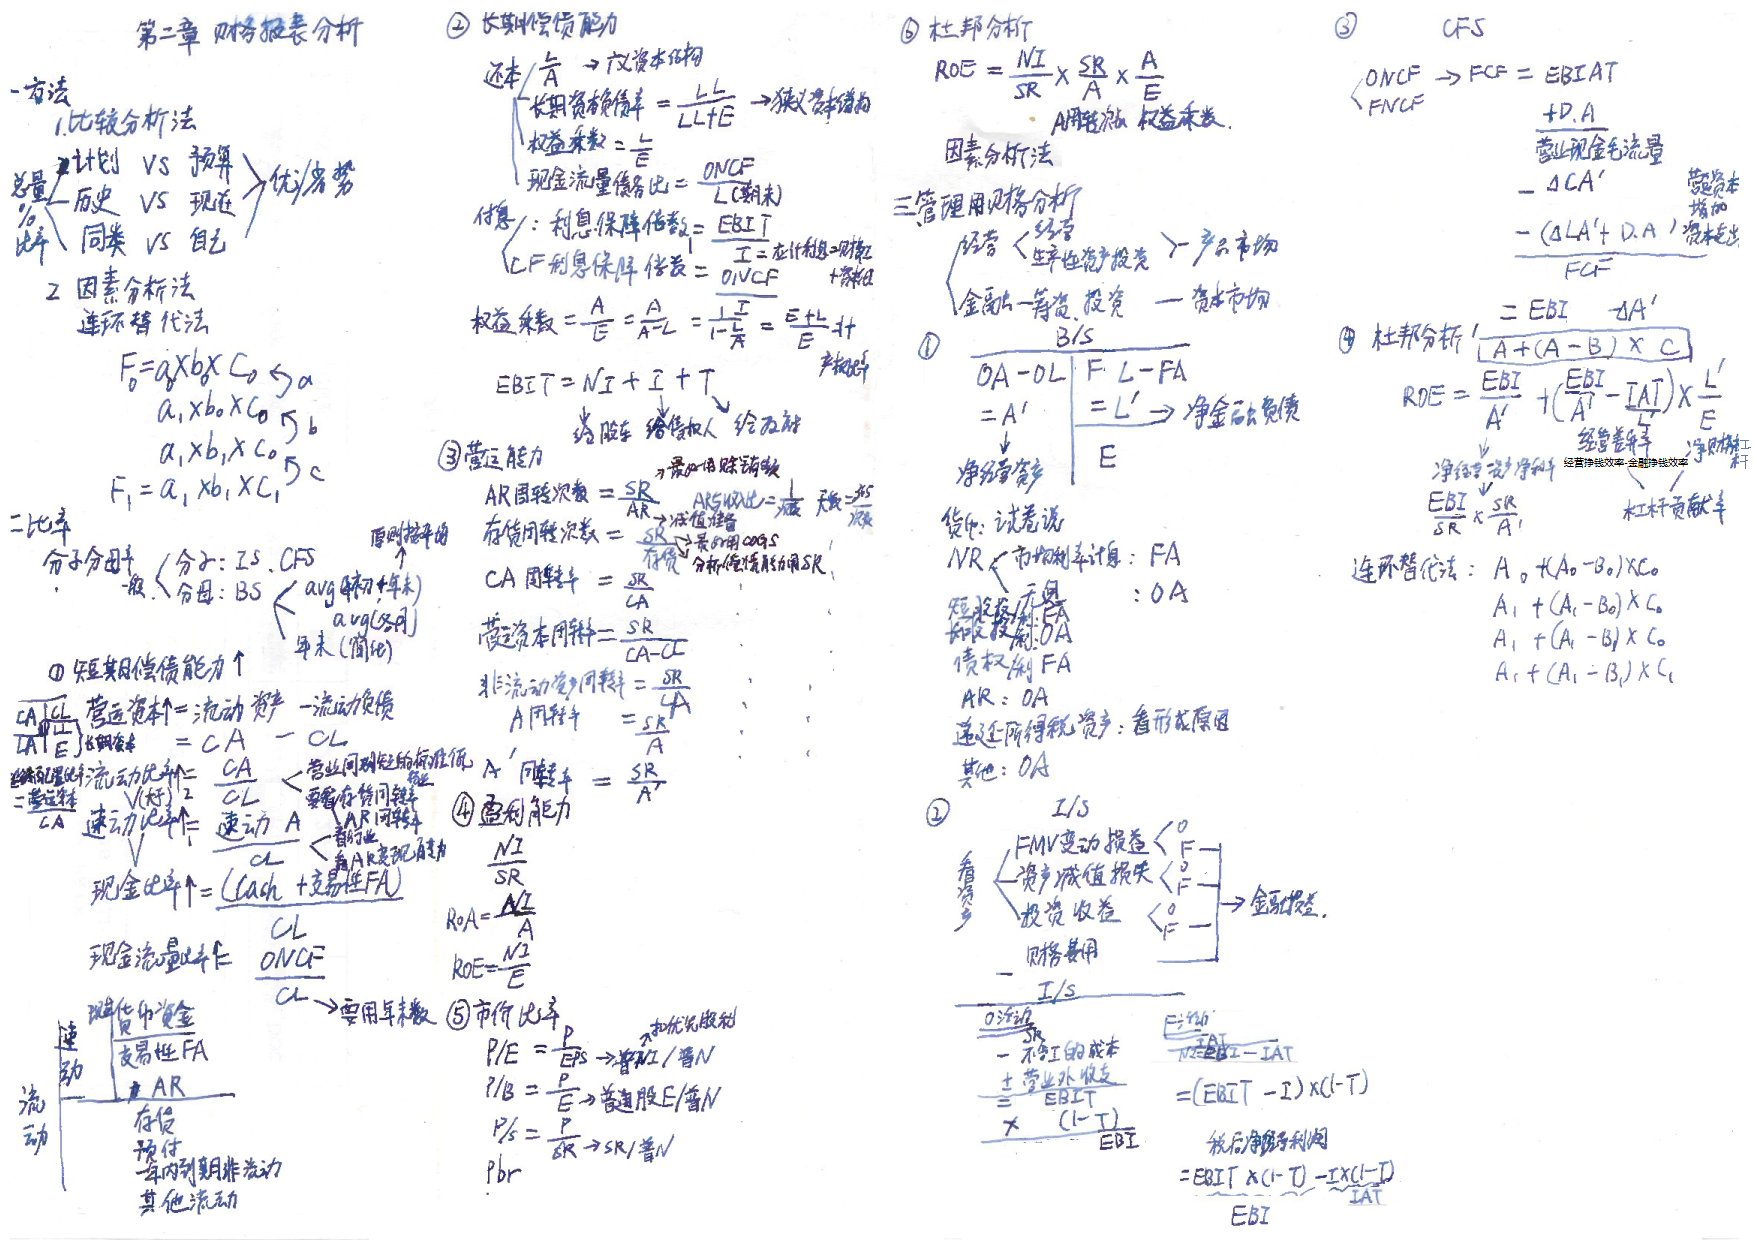 第二章 财务报表分析
一方法
1.比较分析法
总量
%
比率
计划 VS 预算
历史 VS 现在
同类 VS 自己
优/劣势
2 因素分析法
连环替代法
F₀=a₀×b₀×C₀
a
a₁×b₀×C₀
b
a₁×b₁×C₀
c
F₁=a₁×b₁×C₁
二比率
分子分母率
一般
分子: IS. CFS
分母: BS
原则按平均
avg(年初+年末)
avg(各月)
年末(简化)
① 短期偿债能力↑
CA CL
LA E
长期资本
营运资本↑=流动资产-流动负债
=CA - CL
流动比率↑=CA/CL
=营运资本/CA
营业周期短的存准低
要看存货周转率
AR周转率
速动比率↑=速动A/CL
看行业
看AR变现能力
现金比率↑=(Cash+交易性FA)/CL
现金流量比率↑=ONCF/CL→要用年末数
流动
速动
现金
货币资金
交易性FA
AR
存货
预付
一年内到期非流动
其他流动
② 长期偿债能力
还本
L/A →广义资本结构
长期资本负债率=LL/(LL+E)→狭义资本结构
权益乘数=L/E
现金流量债务比=ONCF/L(期末)
付息: 利息保障倍数=EBIT/I
I=应计利息=财务I+资本化I
CF利息保障倍数=ONCF/I
权益乘数=A/E=A/(A-L)=1/(1-L/A)=(E+L)/E=1+产权比率
EBIT=NI+I+T
给股东 给债权人 给政府
③营运能力
AR周转次数=SR/AR
→最好用赊销数
→减值准备
AR与收入比=1/次数 天数=365/次数
存货周转次数=SR/存货
→最好用COGS
分析偿债能力用SR
CA周转率=SR/CA
营运资本周转率=SR/(CA-CL)
非流动资产周转率=SR/LA
A周转率=SR/A
A'周转率=SR/A'
④盈利能力
NI/SR
ROA=NI/A
ROE=NI/E
⑤市价比率
扣优先股利
P/E=P/EPS→普NI/普N
P/B=P/E→普通股E/普N
P/S=P/SR→SR/普N
Pbr
⑥ 杜邦分析
ROE=NI/SR×SR/A×A/E
A周转次数 权益乘数.
因素分析法
三管理用财务分析
经营
经营
生产性资产投资
—产品市场
金融—筹资.投资 —资本市场
①
B/S
OA-OL F L-FA
=A' =L'→净金融负债
净经营资产 E
货币: 试卷说
NR
市场利率计息: FA
无息: OA
短股投/利:FA
长股投/利:OA
债权/利 FA
AR: OA
递延所得税资产: 看形成原因
其他: OA
② I/S
看资产
FMV变动损益 O F
资产减值损失 O F
投资收益 O F
财务费用
→金融损益.
I/S
O活动
SR
- 不含I的成本
± 营业外收支
= EBIT
× (1-T)
EBI
F活动
IAT
NI=EBI-IAT
=(EBIT-I)×(1-T)
税后净经营利润
=EBIT×(1-T)-I×(1-T)
EBI
IAT
③ CFS
ONCF
FNCF
→FCF=EBIAT
+D.A
营业现金毛流量
-ΔCA'
营运资本增加
-(ΔLA'+D.A)
资本支出
FCF
=EBI ΔA'
④ 杜邦分析'
A+(A-B)×C
ROE=EBI/A'+(EBI/A'-IAT/L')×L'/E
经营差异率
净财务杠杆
经营挣钱效率-金融挣钱效率
净经营资产净利率
EBI/SR×SR/A'
杠杆贡献率
连环替代法: A₀+(A₀-B₀)×C₀
A₁+(A₁-B₀)×C₀
A₁+(A₁-B₁)×C₀
A₁+(A₁-B₁)×C₁